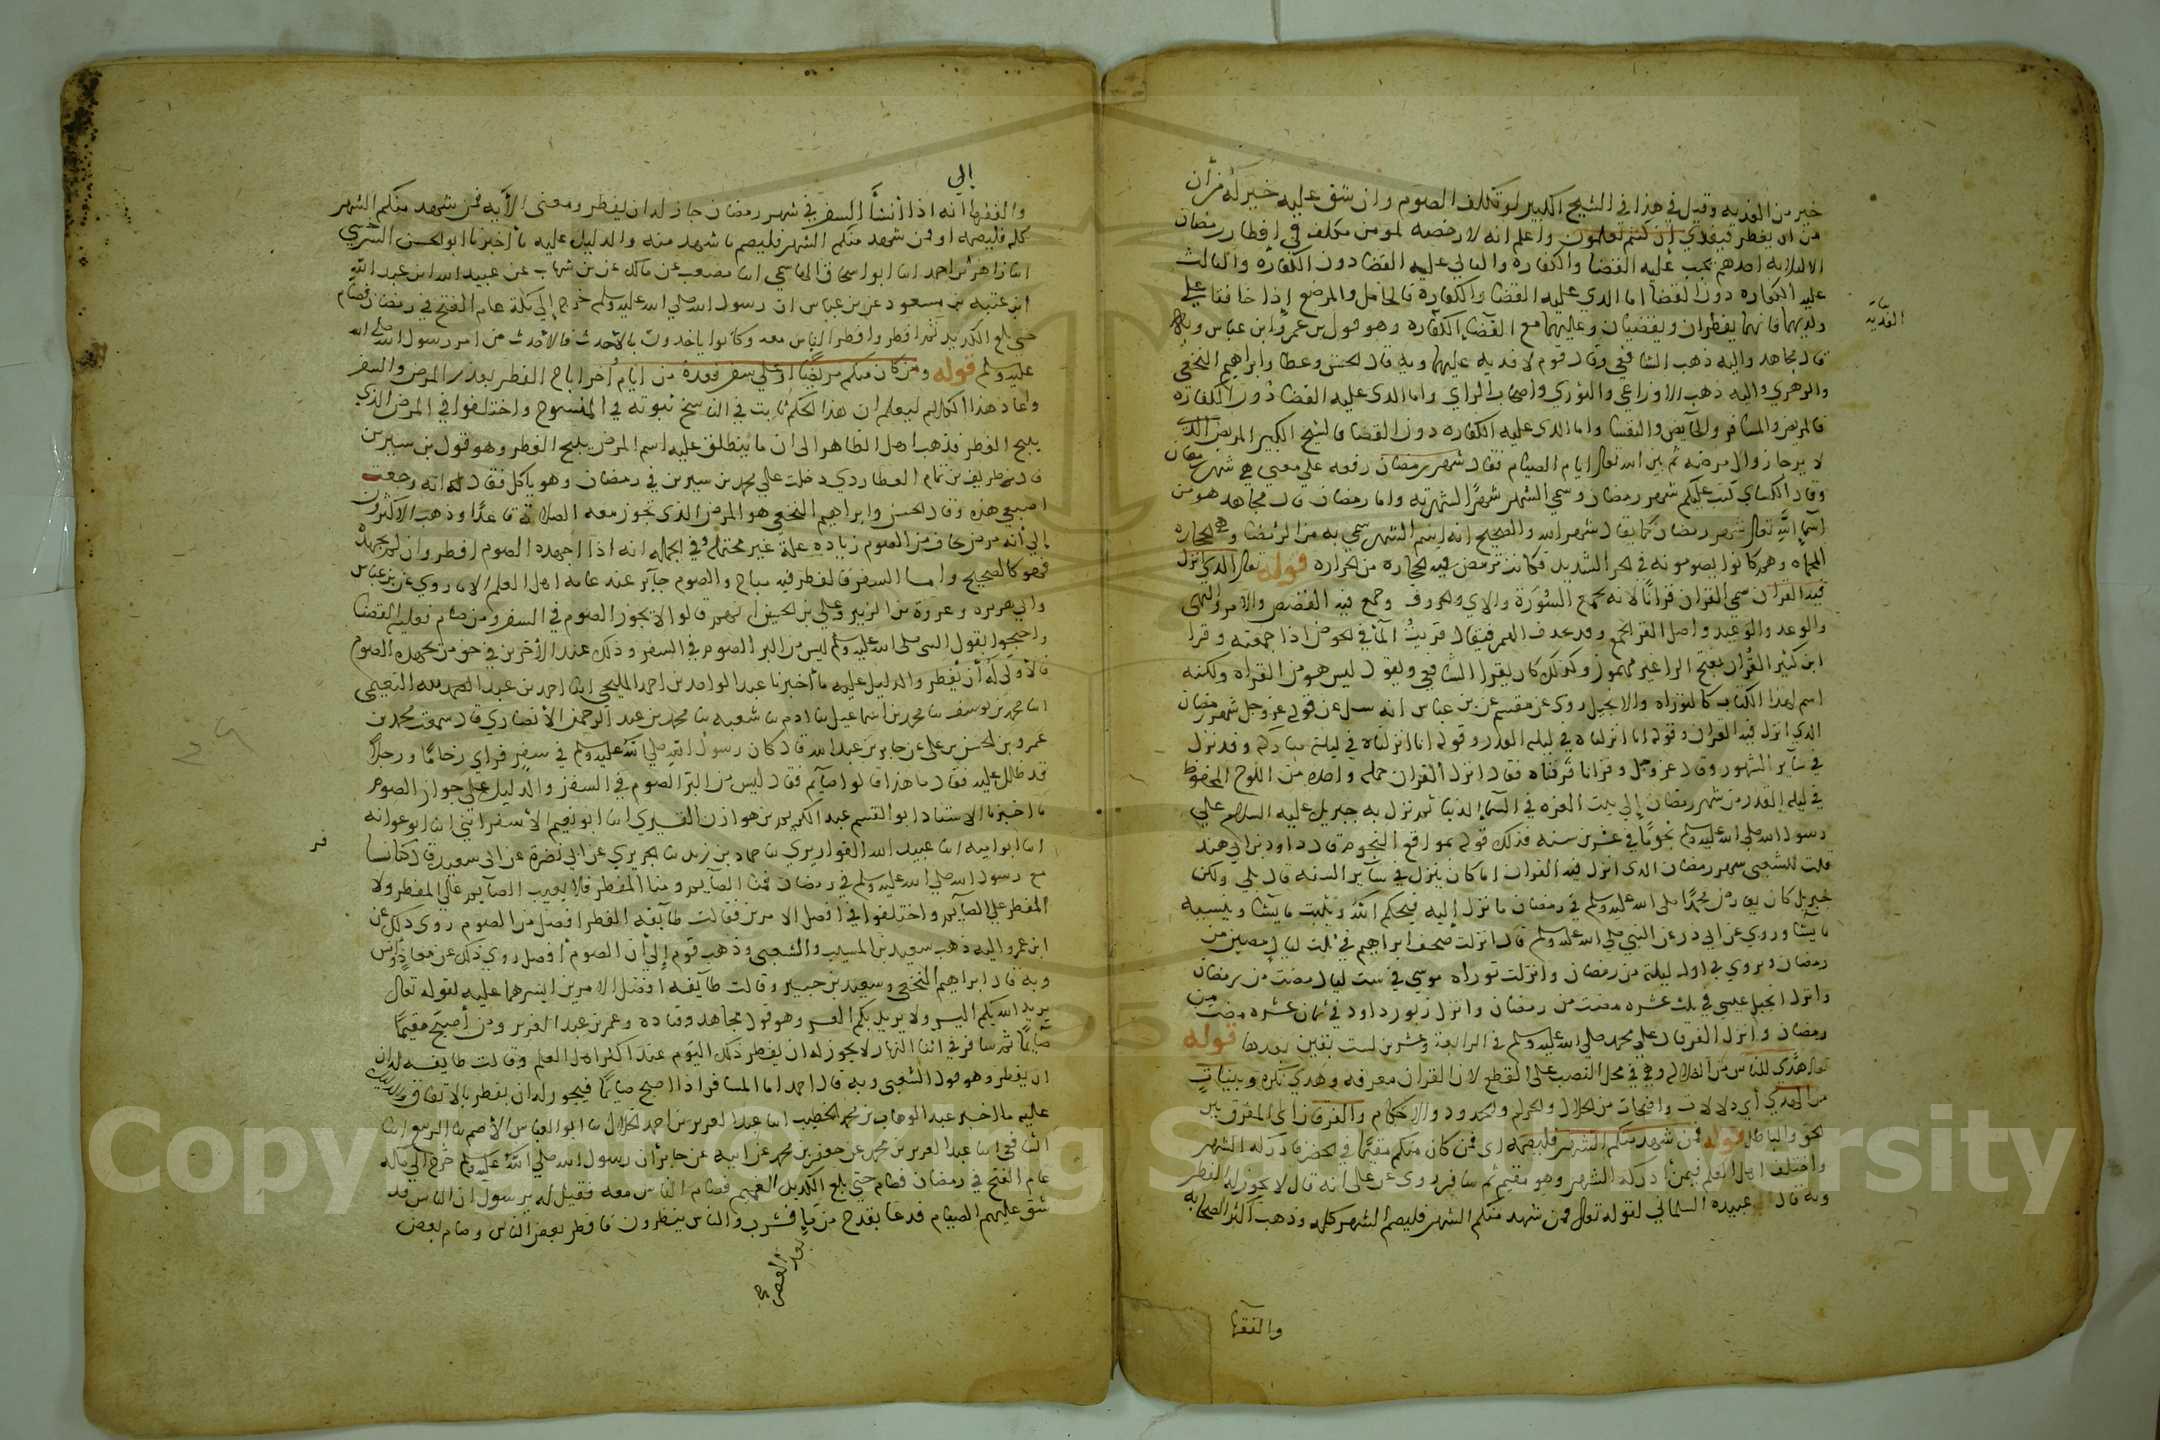 خير من الفديه وقيل في هذا في الشيخ الكبير لو تكلف الصوم وان شق عليه خير له من أن
من ان يفطر فيفدي إن كنتم تعلمون واعلم انه لا رخصه لمومن مكلف في إفطار رمضان
الا لثلاثه احدهم يجب عليه القضا والكفاره والثاني عليه القضا دون الكفاره والثالث
عليه الكفاره دون القضا اما الذي عليه القضا والكفارة فالحامل والمرضع إذا خافتا علي
ولديهما فانهما يفطران ويقضيان وعليهما مع القضاء الكفاره وهو قول بن عمر وابن عباس وبه
الفدية
قال مجاهد واليه ذهب الشافعي وقال قوم لا فديه عليهما وبه قال الحسن وعطا وابراهيم النخعي
والزهري واليه ذهب الاوزاعي والثوري واصحاب الراي واما الذي عليه القضا دون الكفاره
فالمريض والمسافر والحايض والنفسا واما الذي عليه الكفاره دون القضا فالشيخ الكبير المريض الذي
لا يرجا زوال مرضه ثم بين الله تعالى ايام الصيام فقال شهر رمضان رفعه علي معني هي شهر رمضان
وقال الكساي كتب عليكم شهر رمضان وسمي الشهر شهرًا لشهرته واما رمضان قال مجاهد هو من
اسماء الله تعالى شهر رمضان كما يقال شهر الله والصحيح انه اسم الشهر سمي به من الرمضا وهي الحجاره
المحماه وهم كانوا يصومونه في الحر الشديد فكانت ترمض فيه الحجاره من الحراره قوله تعالى الذي انزل
فيه القران سمي القران قرانًا لانه يجمع السورة والاي والحروف وجمع فيه القصص والامر والنهي
والوعد والوعيد واصل القر الجمع وقد يحذف الهمز فيقال قريتُ الماء في الحوض اذا جمعته وقرا
ابن كثير القُران بفتح الرا غير مهموز وكذلك كان يقرا الشافعي ويقول ليس هو من القراه ولكنه
اسم لهذا الكتاب كالتوراه والانجيل روي عن مقسم عن بن عباس انه سل عن قوله عز وجل شهر رمضان
الذي انزل فيه القران وقوله انا انزلناه في ليله القدر وقوله انا انزلناه في ليلة مباركه وقد نزل
في سآير الشهور وقال عز وجل وقرانا فرقناه فقال انزل القران جمله واحده من اللوح المحفوظ
في ليله القدر من شهر رمضان إلي بيت العزه في السماء الدنيا ثم نزل به جبريل عليه السلام علي
رسول الله صلي الله عليه وسلم نجومًا في عشرين سنه فذلك قوله بمواقع النجوم قال داود بن ابي هند
قلت للشعبي شهر رمضان الذي انزل فيه القران اما كان ينزل في سآير السنه قال بلي ولكن
جبريل كان يعارض محمدًا صلي الله عليه وسلم في رمضان ما نزل إليه فيحكم الله ويثبت ما يشا وينسيه
ما يشا وروي عن ابي ذر عن النبي صلي الله عليه وسلم قال انزلت صحف ابراهيم في ثلث ليال مضين من
رمضان ويروي في اول ليلة من رمضان وانزلت توراه موسي في ست ليال مضت من رمضان
وانزل انجيل عيسي في ثلث عشره مضت من رمضان وانزل زبور داود في ثمان عشره مضت من
رمضان وانزل الفرقان علي محمد صلي الله عليه وسلم في الرابعة وعشرين لست بقين بعدها قوله
تعالى هدًي للناس من الضلاله وهي في محل النصب على القطع لان القران معرفه وهدي نكره وبينات
من الهدي أي دلالات واضحات من الحلال والحرام والحدود والاحكام والفرقان اي المفرق بين
الحق والباطل قوله فمن شهد منكم الشهر فليصمه اي فمن كان منكم مقيمًا في الحضر فادركه الشهر
واختلف اهل العلم فيمن ادركه الشهر وهو مقيم ثم سافر روي عن علي أنه قال لا يجوز له الفطر
وبه قال عبيده السلماني لقوله تعالى فمن شهد منكم الشهر فليصمه الشهر كله وذهب اكثر الصحابه
والفقها
إلي
والفقها انه اذا أنشأ السفر في شهر رمضان جاز له ان يفطر ومعنى الآيه فمن شهد منكم الشهر
كله فليصمه او من شهد منكم الشهر فليصم ما شهد منه والدليل عليه ما أخبرنا ابو الحسن السرخسي
انا زاهر بن احمد انا ابو اسحاق الهاشمي انا مصعب عن مالك عن بن شهاب عن عبيد الله ابن عبد الله
ابن عتبه بن مسعود عن بن عباس ان رسول الله صلي الله عليه وسلم خرج إلي مكة عام الفتح في رمضان فصام
حتى بلغ الكديد ثم افطر وافطر الناس معه وكانوا ياخذون بالأحدث فالأحدث من امر رسول الله صلي الله
عليه وسلم قوله ومن كان منكم مريضًا او علي سفر فعدة من ايام أخر اباح الفطر بعذر المرض والسفر
واعاد هذا الكلام ليعلم ان هذا الحكم ثابت في الناسخ ثبوته في المنسوخ واختلفوا في المرض الذي
يبيح الفطر فذهب اهل الظاهر الى ان ما ينطلق عليه اسم المرض يبيح الفطر وهو قول بن سيرين
قال طريف بن تمام العطاردي دخلت علي محمد بن سيرين في رمضان وهو ياكل فقال له انه وجعت
اصبعي هذه وقال الحسن وابراهيم النخعي هو المرض الذي تجوز معه الصلاة قاعدًا وذهب الاكثرون
إلي أنه مرض يخاف من الصوم زياده علة غير محتمله وفي الجمله انه اذا اجهده الصوم افطر وان لم يجهده
فهو كالصحيح واما السفر فالفطر فيه مباح والصوم جآيز عند عامه اهل العلم الا ما روي عن بن عباس
وابي هريره وعروة بن الزبير وعلي بن الحسين انهم قالوا لا يجوز الصوم في السفر ومن صام فعليه القضا
واحتجوا بقول النبي صلى الله عليه وسلم ليس من البر الصوم في السفر وذلك عند الآخرين في حق من يجهده الصوم
فالأولى له أن يُفطر والدليل عليه ما أخبرنا عبد الواحد بن احمد المليحي انا احمد بن عبد الله النعيمي
انا محمد بن يوسف ثنا محمد بن اسماعيل ثنا ادم ثنا شعبه ثنا محمد بن عبد الرحمن الأنصاري قال سمعت محمد بن
عمرو بن الحسن بن علي عن جابر بن عبد الله قال كان رسول الله صلي الله عليه وسلم في سفر فراي زحامًا ورجلًا
قد ظلل عليه فقال ما هذا قالوا صآيم فقال ليس من البر الصوم في السفر والدليل علي جواز الصوم
ما اخبرنا الاستاد ابو القسم عبد الكريم بن هوازن القشيري انا ابو نعيم الأسفرايني انا ابو عوانه
انا ابو اميه انا عبيد الله القواريري ثنا حماد بن زيد ثنا الجريري عن ابي نضرة عن ابي سعيد قال كنا نسافر
مع رسول الله صلي الله عليه وسلم في رمضان فمنا الصآيم ومنا المفطر فلا يعيب الصآيم علي المفطر ولا
المفطر علي الصآيم واختلفوا في افضل الامرين فقالت طآيفه الفطر افضل من الصوم روي ذلك عن
ابن عمر واليه ذهب سعيد بن المسيب والشعبي وذهب قوم إلي أن الصوم أفضل روي ذلك عن معاذ وأنس
وبه قال ابراهيم النخعي وسعيد بن جبير وقالت طآيفه افضل الامرين ايسرهما عليه لقوله تعالى
يريد الله بكم اليسر ولا يريد بكم العسر وهو قول مجاهد وقتاده وعمر بن عبد العزيز ومن أصبح مقيمًا
صآيمًا ثم سافر في اثنا النهار لا يجوز له ان يفطر ذلك اليوم عند اكثر اهل العلم وقالت طايفه له ان
ان يفطر وهو قول الشعبي وبه قال احمد اما المسافر اذا اصبح صايمًا فيجوز له ان يفطر بالاتفاق والدليل
عليه ما اخبر عبد الوهاب بن محمد الخطيب انا عبد العزيز بن احمد الخلال ثنا ابو العباس الأصم ثنا الربيع انا
الشافعي انا عبد العزيز بن محمد عن جعفر بن محمد عن ابيه عن جابر أن رسول الله صلي الله عليه وسلم خرج الي مكه
عام الفتح في رمضان فصام حتى بلغ الكديد الغميم فصام الناس معه فقيل له يا رسول الله ان الناس قد
شق عليهم الصيام فدعا بقدح من ماء فشرب والناس ينظرون فافطر بعض الناس وصام بعض
بعد العصر
Copyright © King Saud University